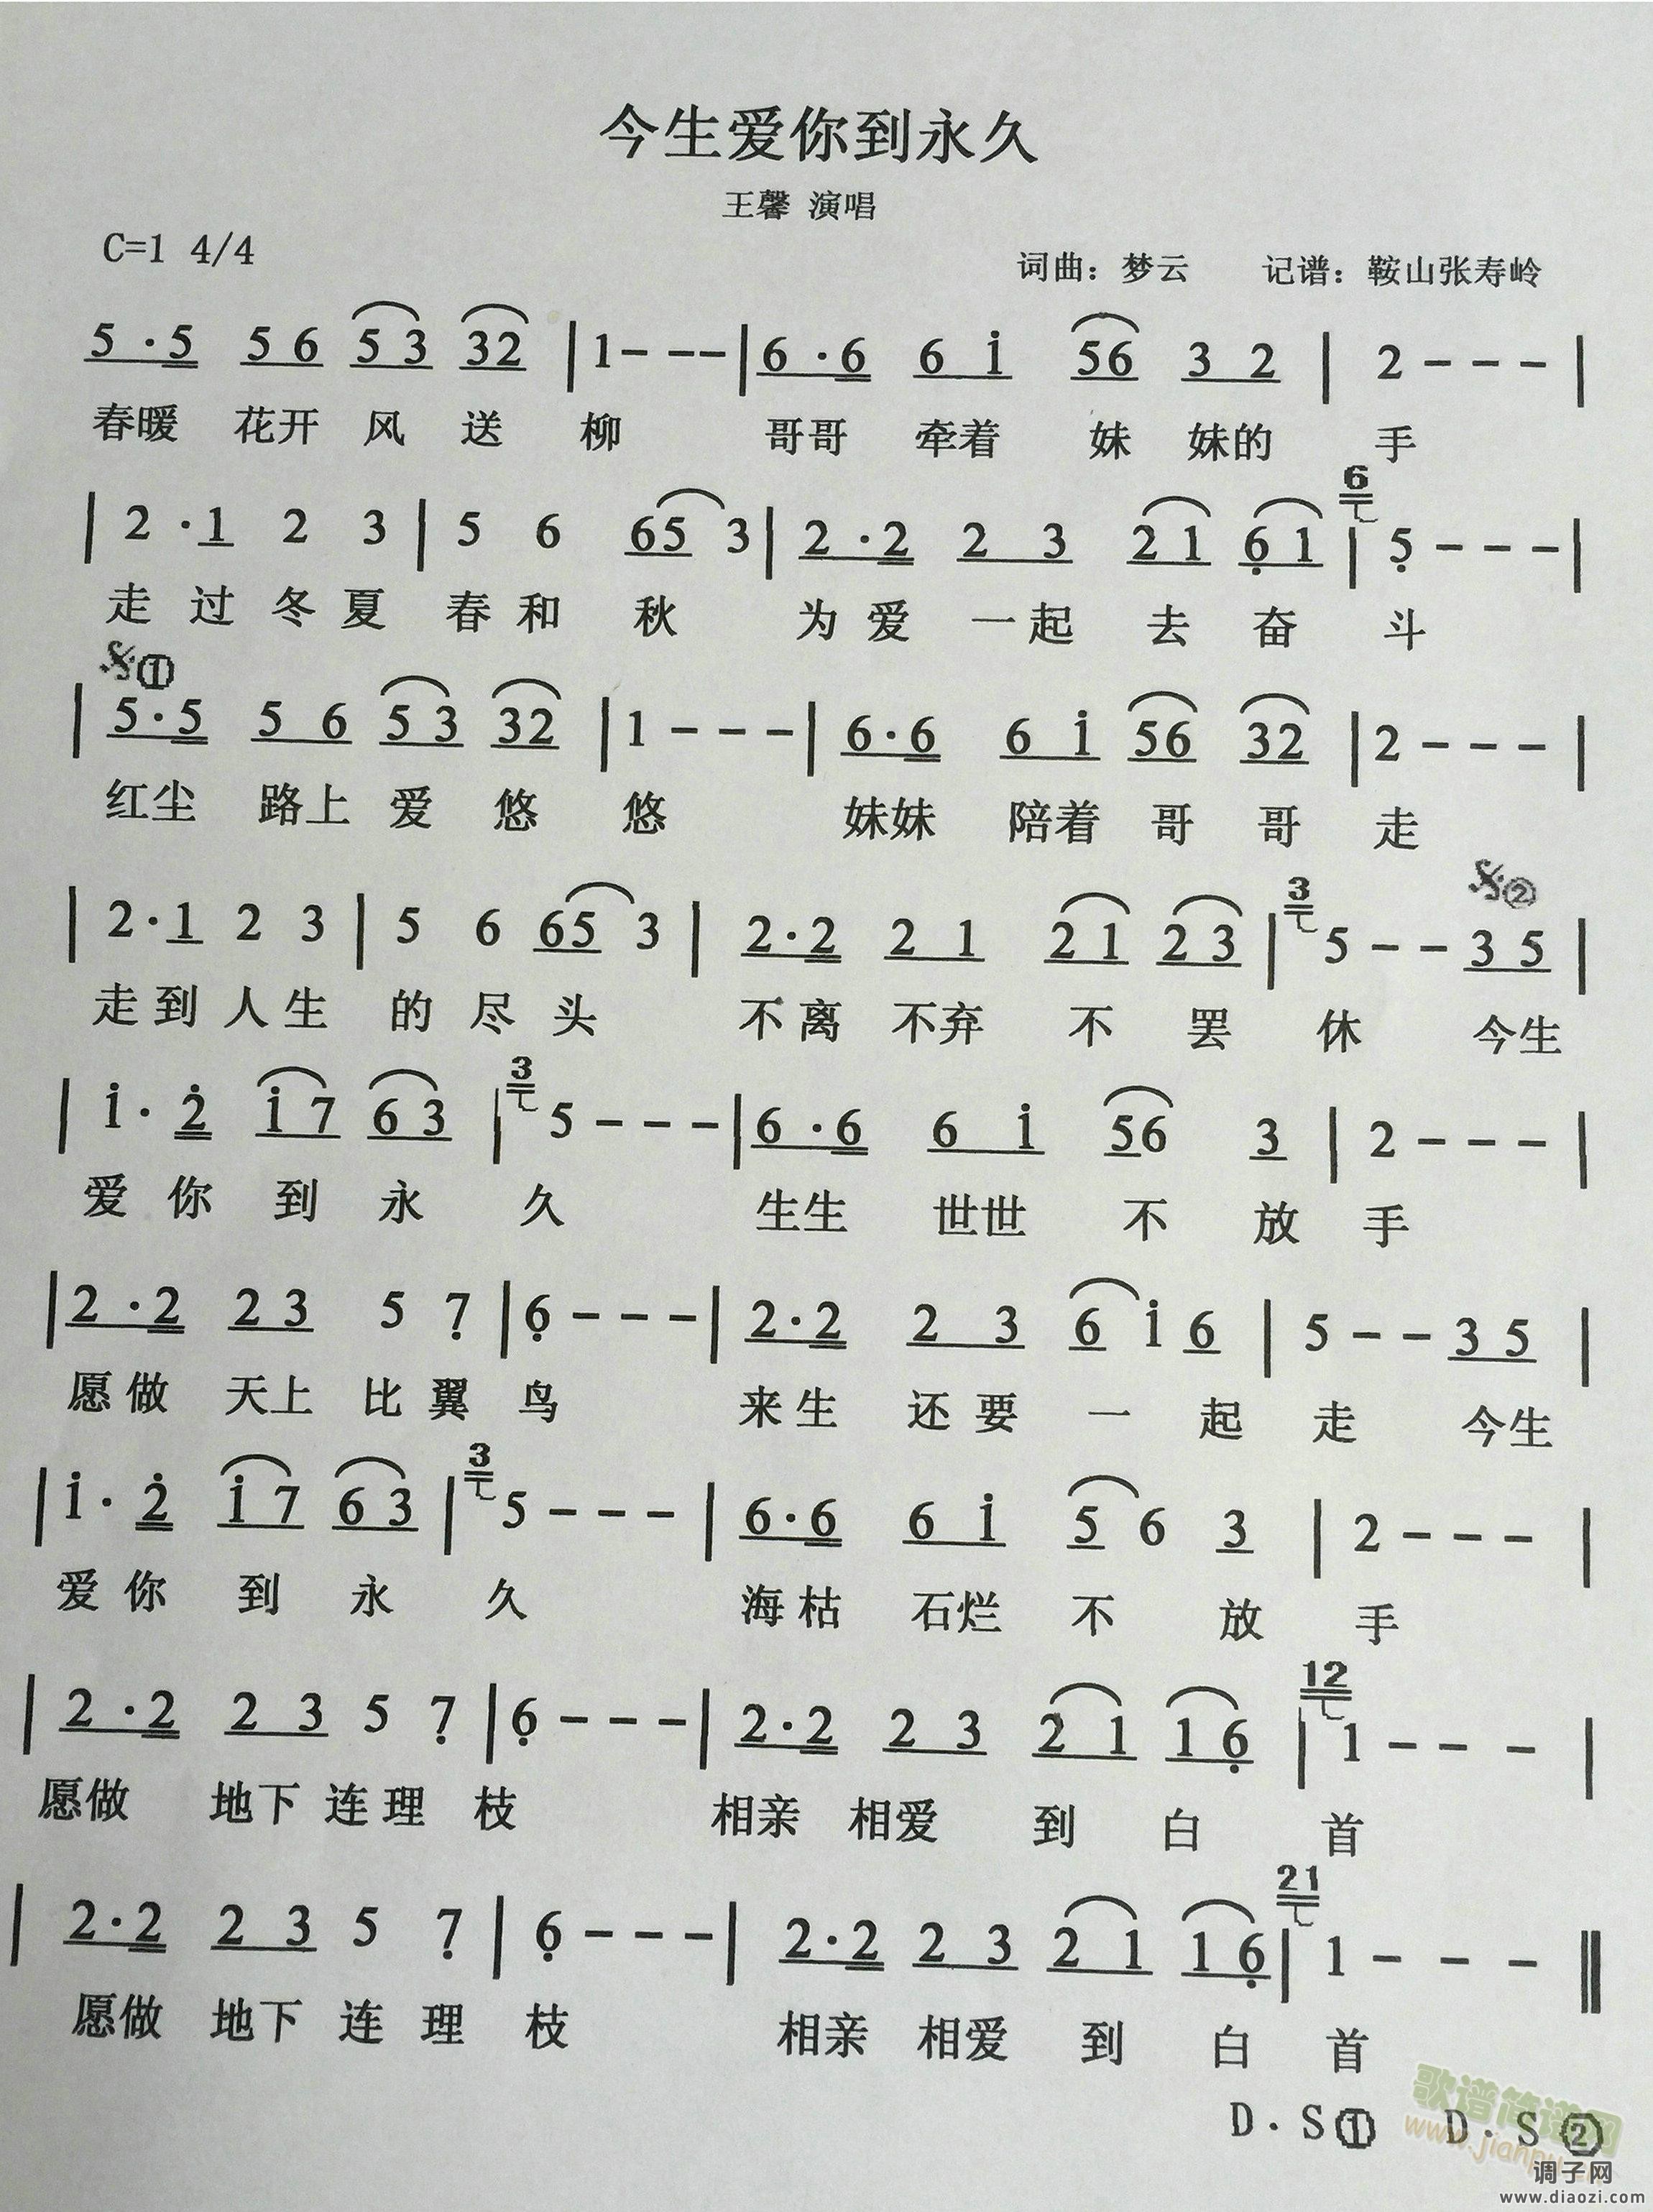 今生爱你到永久
王馨 演唱
C=1 4/4 词曲：梦云 记谱：鞍山张寿岭
5·5 56 53 32 | 1--- | 6·6 6i 56 32 | 2--- |
春暖 花开 风 送 柳 哥哥 牵着 妹 妹的 手
6
| 2·1 2 3 | 5 6 65 3 | 2·2 2 3 21 6̣1 | 5̣--- |
走 过 冬 夏 春 和 秋 为 爱 一起 去 奋 斗
𝄋①
| 5·5 5 6 53 32 | 1--- | 6·6 6 i 56 32 | 2--- |
红尘 路上 爱 悠 悠 妹妹 陪着 哥 哥 走
3 𝄋②
| 2·1 2 3 | 5 6 65 3 | 2·2 2 1 21 23 | 5--35 |
走到 人生 的 尽 头 不离 不弃 不 罢 休 今生
3
| i·2̇ i7 63 | 5--- | 6·6 6 i 56 3 | 2--- |
爱 你 到 永 久 生生 世世 不 放 手
| 2·2 23 5 7̣ | 6̣--- | 2·2 2 3 6 i 6 | 5--35 |
愿做 天上 比 翼 鸟 来生 还要 一 起 走 今生
3
| i·2̇ i7 63 | 5--- | 6·6 6 i 5 6 3 | 2--- |
爱 你 到 永 久 海枯 石烂 不 放 手
12
| 2·2 2 3 5 7̣ | 6̣--- | 2·2 2 3 2 1 16̣ | 1--- |
愿做 地下 连 理 枝 相亲 相爱 到 白 首
21
| 2·2 2 3 5 7̣ | 6̣--- | 2·2 2 3 2 1 16̣ | 1--- ‖
愿做 地下 连 理 枝 相亲 相爱 到 白 首
D·S① D·S②
歌谱简谱网
www.jianpu
调子网
www.diaozi.com